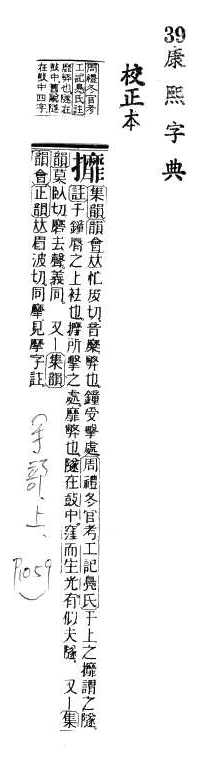 39康熙字典
校正本
周禮冬官考
工記鳧氏註
靡弊也隧在
鼓中舊闕隧
在鼓中四字
攠集韻韻會𠀤忙皮切音糜弊也鐘受擊處周禮冬官考工記鳧氏于上之攠謂之隧
註于鐘脣之上袪也攠所擊之處靡弊也隧在鼓中窪而生光有似夫隧又丨集
韻莫臥切磨去聲義同又丨集韻
韻會正韻𠀤眉波切同摩見摩字註
(手部上、P1059)